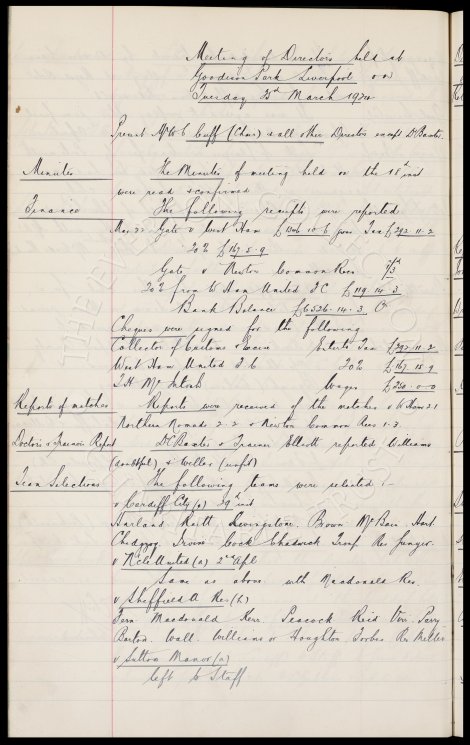 Meeting of Directors held at
Goodison Park Liverpool on
Tuesday 25th March 1924
Present Mr W C Cuff (Chair) & all other Directors except Dr Baxter.
Minutes The Minutes of meeting held on the 18th inst
were read & confirmed
Finance The following receipts were reported
Mar 22 Gate v West Ham £1306.10.6 less Tax £292.11.2
20% £167.5.9
Gate v Newton Common Res
20% from W Ham United F C £119.14.3
Bank Balance £6526.14.3
Cheques were signed for the following
Collector of Customs & Excise Enterts Tax £292.11.2
West Ham United F.C 20% £167.15.9
T.H. McIntosh Wages £250.0.0
Reports of matches Reports were received of the matches v W Ham 2.1
Northern Nomads 2-2 v Newton Common Res 1.3.
Doctors & Trainers Report Dr Baxter & Trainer Elliott reported Williams
(doubtful) & Weller (unfit)
Team Selections The following teams were selected :-
v Cardiff City (a) 29th inst
Harland Raitt Livingstone Brown McBain Hart
Chedgzoy Irvine Cock Chadwick Troup Res
v N'cle United (a) 2nd Apl
Same as above with Macdonald Res
v Sheffield U Res (h)
Fern Macdonald Kerr Peacock Reid Virr Parry
Barton Wall Williams or Houghton Forbes Res Miller
v Sutton Manor (a)
left to Staff
THE EVERTON